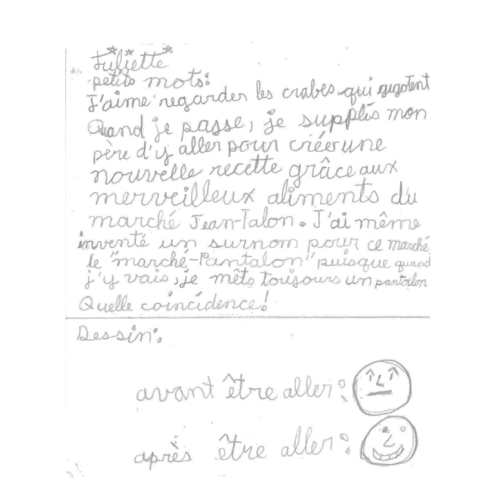 *Juliette*
petits mots:
J'aime regarder les crabes qui gigotent
Quand je passe, je supplis mon
père d'y aller pour créer une
nouvelle recette grâce aux
merveilleux aliments du
marché Jean-Talon. J'ai même
inventé un surnom pour ce marché
le "marché-Pantalon" puisque quand
j'y vais, je mêts toujours un pantalon
Quelle coïncidence!
Dessin:
avant être aller:
après être aller: